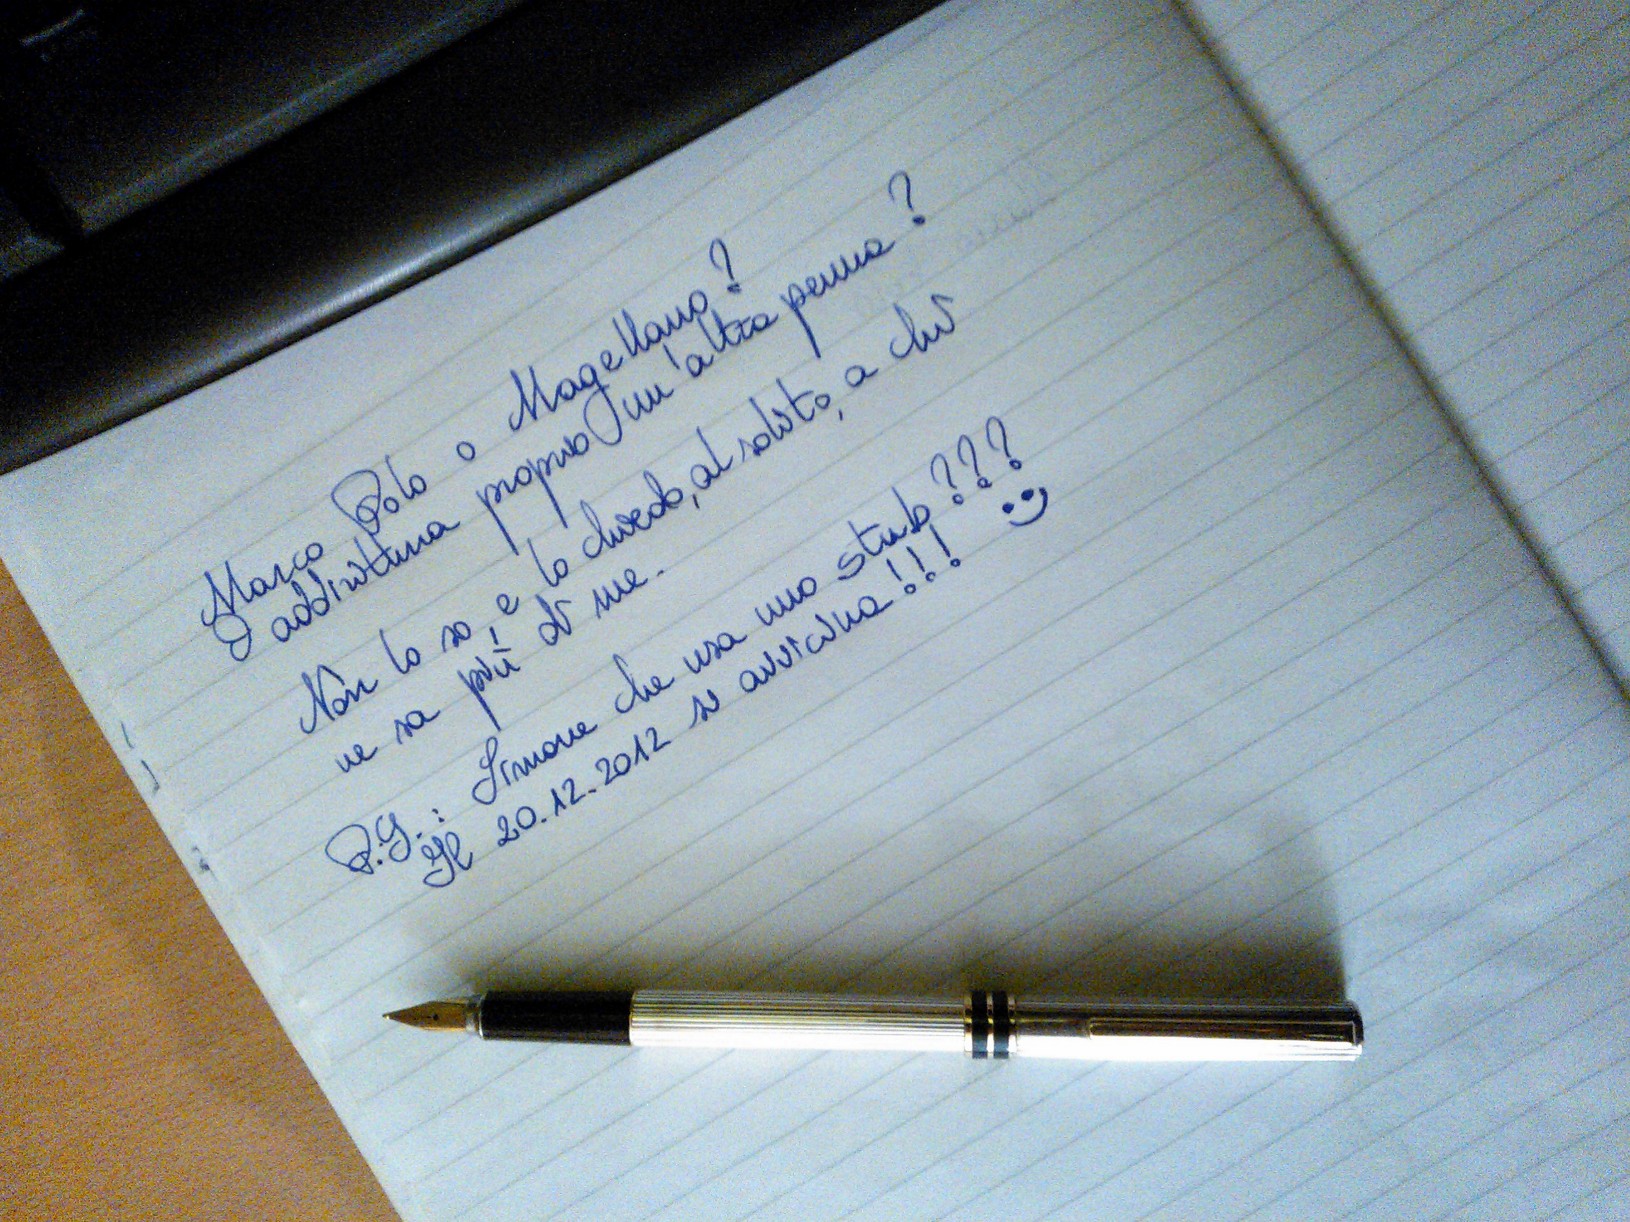 Marco Polo o Magellano?
O addirittura proprio un'altra penna?
Non lo so, e lo chiedo, al solito, a chi
ne sa più di me.
P.S.: Simone che usa uno stub???
Il 20.12.2012 si avvicina!!!